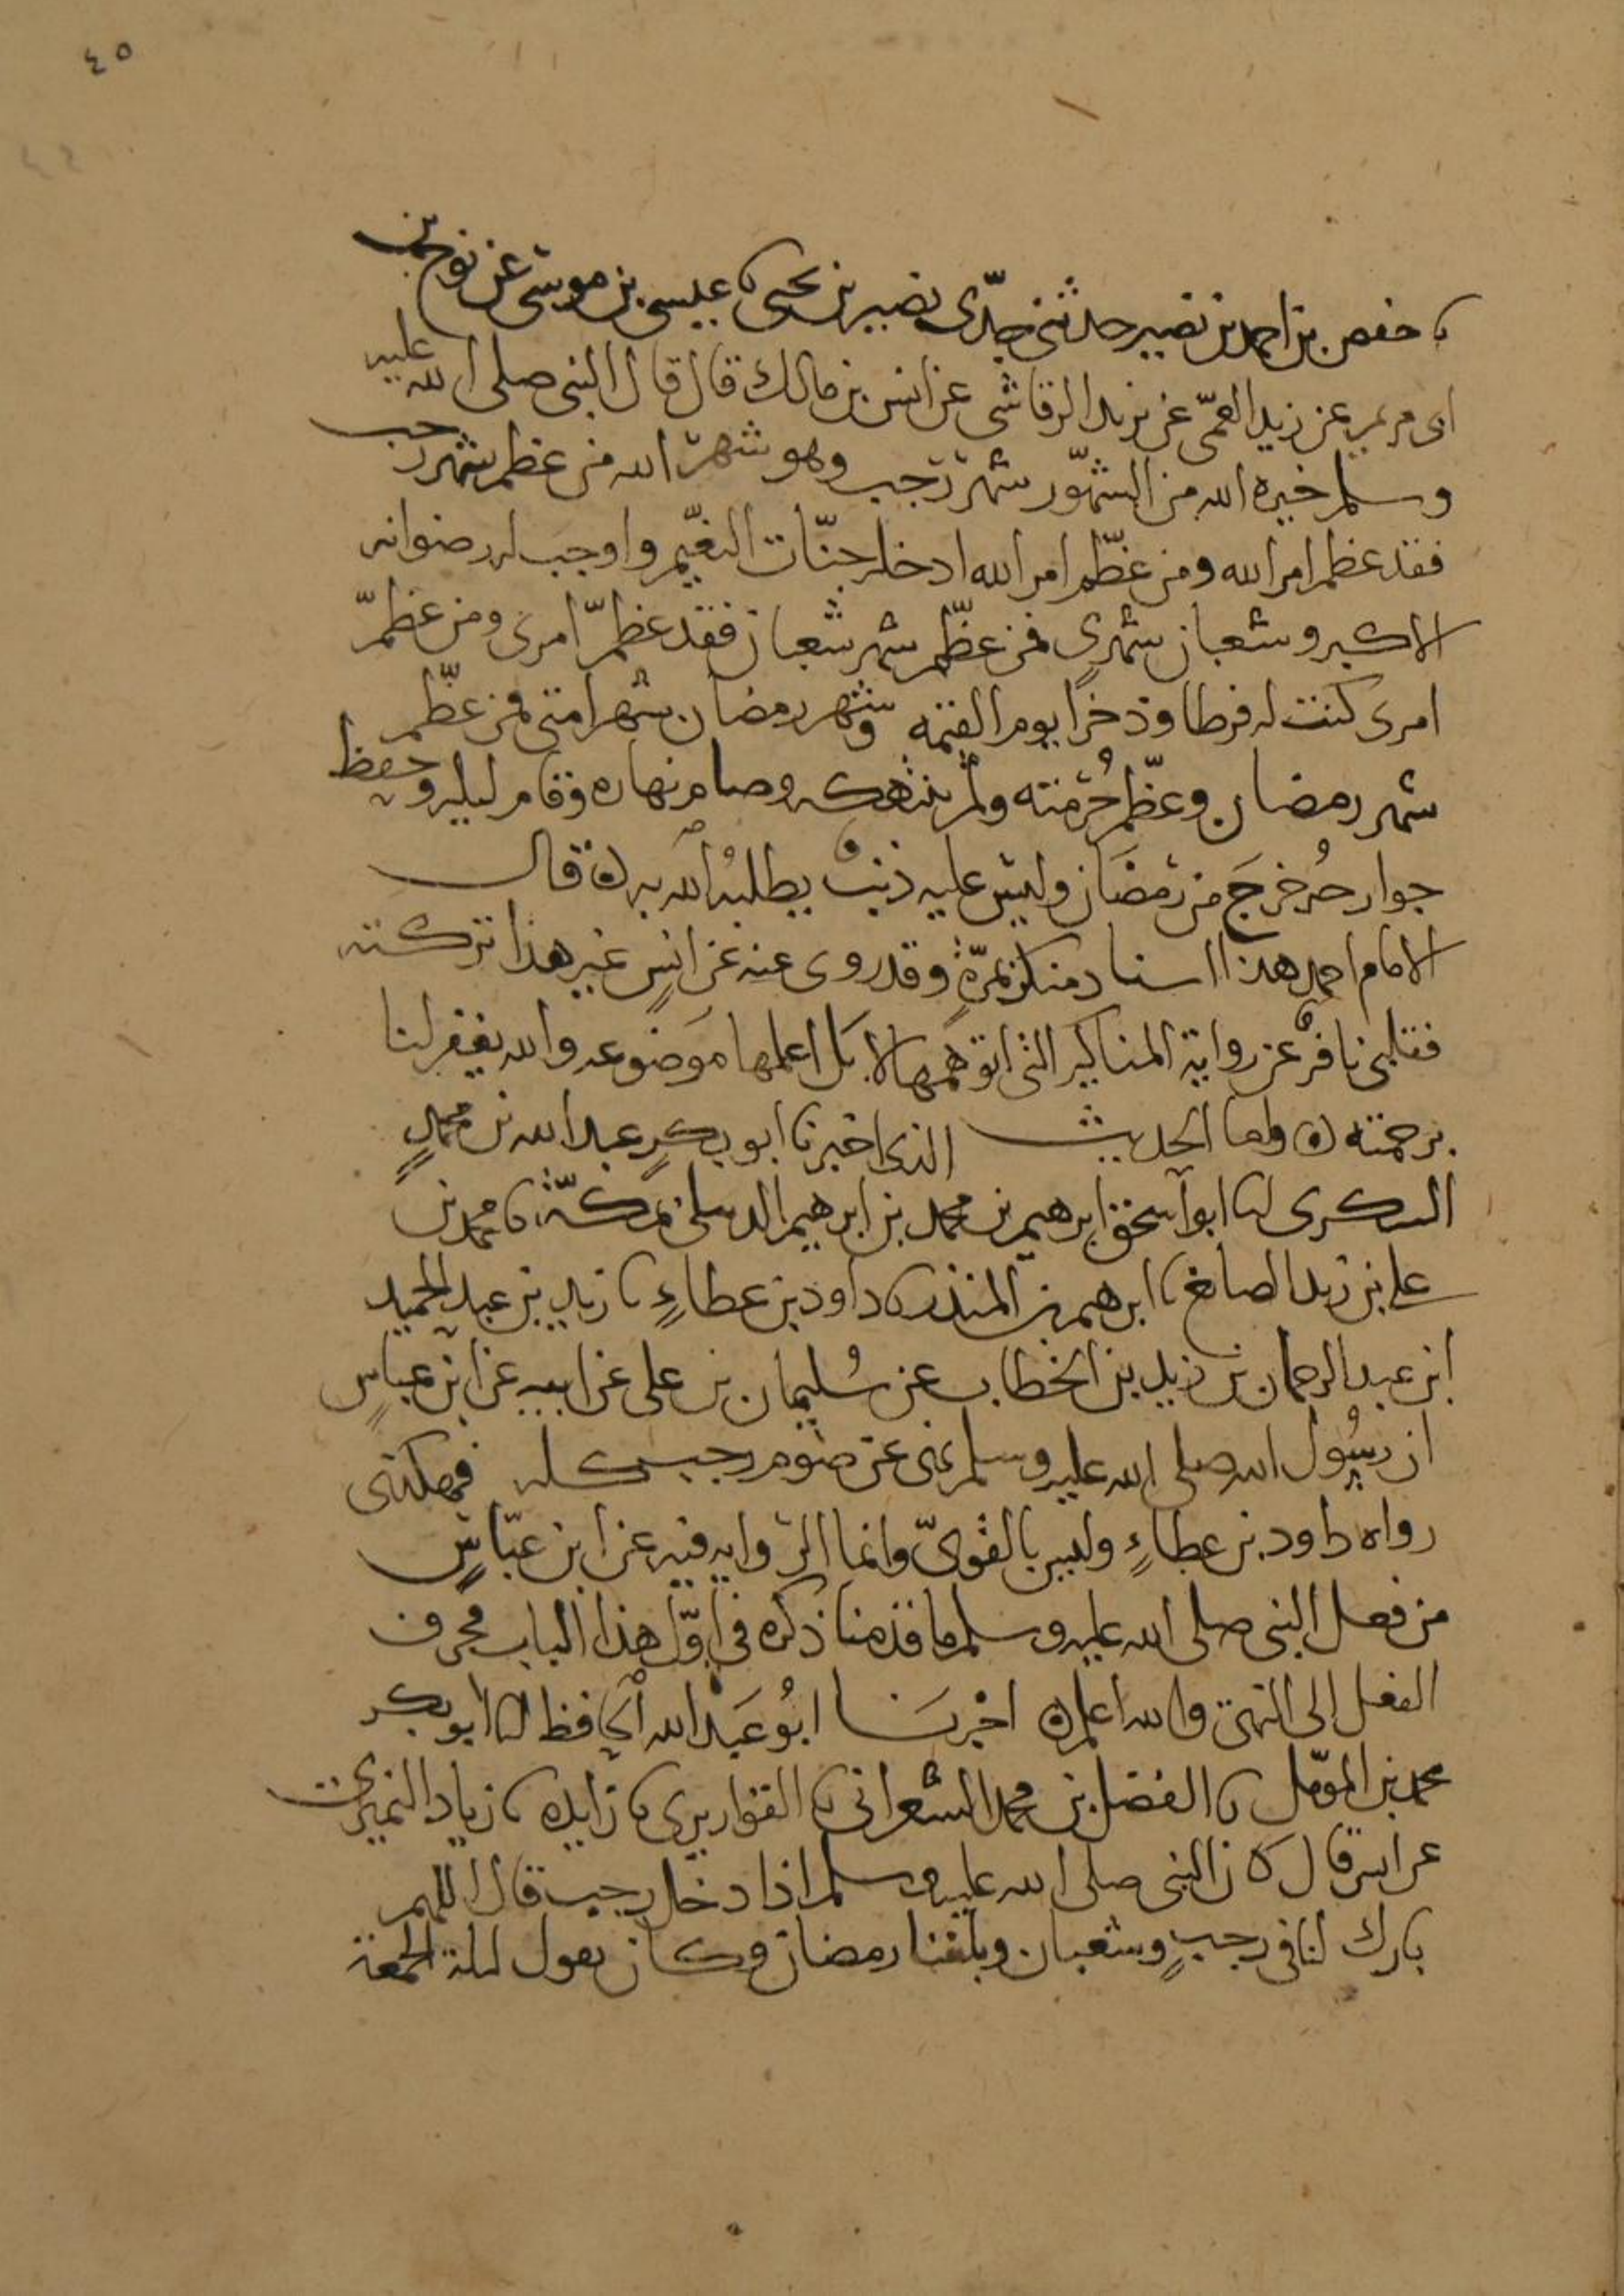 ٤٥
نا حفص بن احمد بن نصير حدثني جدّي نصير بن يحيى نا عيسى بن موسى عن نوح بن
ابى مريم عن زيد العمّى عن يزيد الرقاشي عن انس بن مالك قال قال النبي صلى الله عليه
وسلم خيرة الله من الشهور شهر رجب وهو شهر الله من عظم شهر رجب
فقد عظم امر الله ومن عظّم امر الله ادخله جنّات النعيم واوجب له رضوانه
الاكبر وشعبان شهرى فمن عظّم شهر شعبان فقد عظّم امرى ومن عظّم
امرى كنت له فرطا وذخرًا يوم القيمة وشهر رمضان شهر امتى فمن عظّم
شهر رمضان وعظّم حُرمته ولم ينتهكه وصام نهاره وقام ليله وحفظ
جوارحُه خرجَ من رمضَان وليس عليه ذنبٌ يطلبُه الله به ه قال
الامام احمد هذا اسناد منكر بمرّةٍ وقد روى عنه عن انسٍ غير هذا تركته
فقلبى نافرٌ عن رواية المناكير التى اتوهمها لا بَل اعلمها موضوعه والله يغفر لنا
برحمته ه واما الحديث الذى اخبرنا ابو بكرٍ عبد الله بن محمدٍ
السكرى انا ابو اسحق ابرهيم بن محمد بن ابرهيم الديبلى بمكّة نا محمد بن
على بن زيد الصايغ نا ابرهيم بن المنذر نا داود بن عطاءٍ نا زيد بن عبد الحميد
ابن عبد الرحمان بن زيد بن الخطاب عن سُليمان بن على عن ابيه عن ابن عباسٍ
ان رسُول الله صلى الله عليه وسلم نهى عن صوم رجب كله فهكذى
رواه داود بن عطاءٍ وليس بالقوىّ وانما الروايه فيه عن ابن عبّاسٍ
من فعل النبى صلى الله عليه وسلم ما قدمنا ذكره فى اوّل هذا الباب فحرف
الفعل الى النهى والله اعلم ه اخبرنَا ابُو عَبد الله الحافظ انا ابو بكر
محمد بن المؤمّل نا الفضل بن محمد الشعرانى نا القواريرى نا زايده نا زياد النميرى
عن انس قال كان النبى صلى الله عليه وسلم اذا دخل رجب قال اللهم
بارك لنا فى رجبٍ وشعبان وبلغنا رمضان وكان يقول ليلة الجمعة